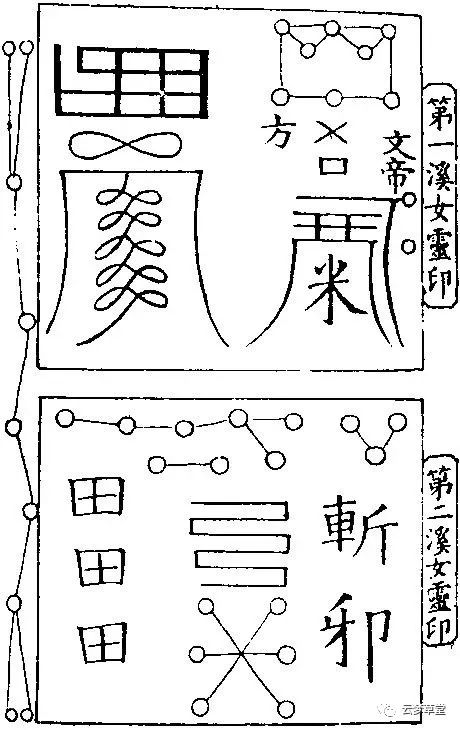 第一溪女靈印
文帝
方
米
第二溪女靈印
斬邪
田
田
田
云梦草堂